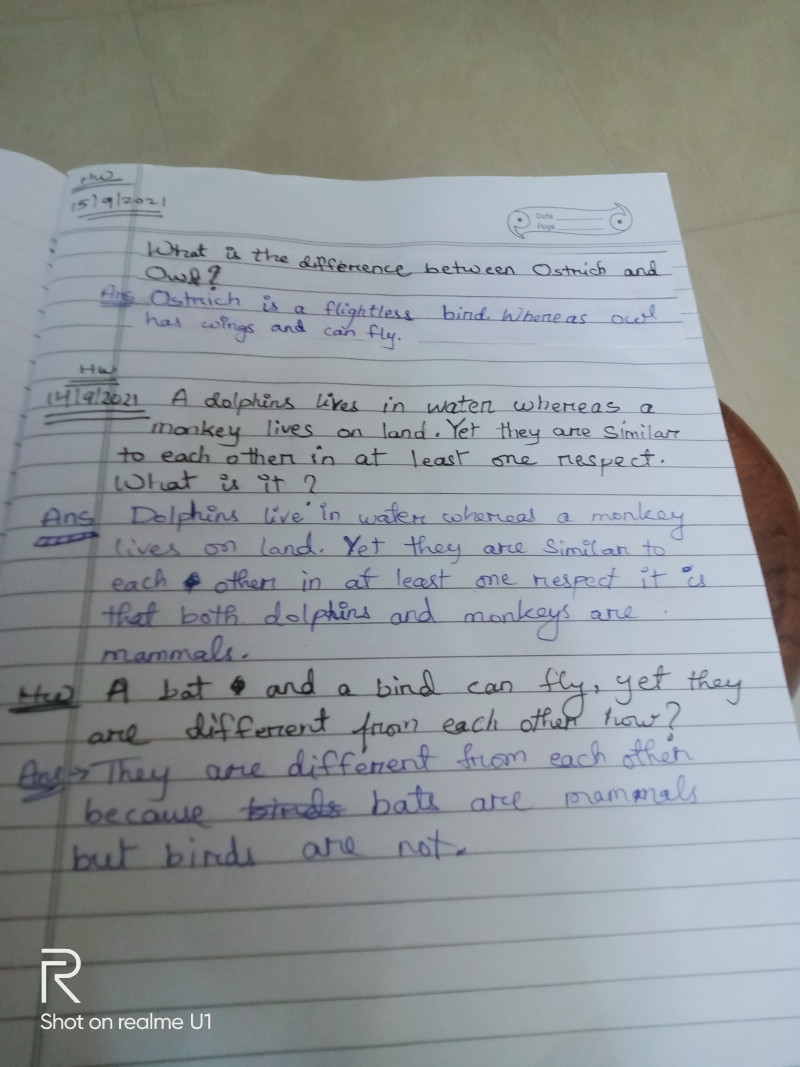 HW
15/9/2021
Date
Page
What is the difference between Ostrich and
Owl?
Ans Ostrich is a flightless bird. Whereas owl
has wings and can fly.
HW
14/9/2021 A dolphins lives in water whereas a
monkey lives on land. Yet they are similar
to each other in at least one respect.
What is it?
Ans Dolphins live in water whereas a monkey
lives on land. Yet they are similar to
each other in at least one respect it is
that both dolphins and monkeys are
mammals.
HW A bat and a bird can fly, yet they
are different from each other how?
Ans→ They are different from each other
because birds bats are mammals
but birds are not.
R
Shot on realme U1